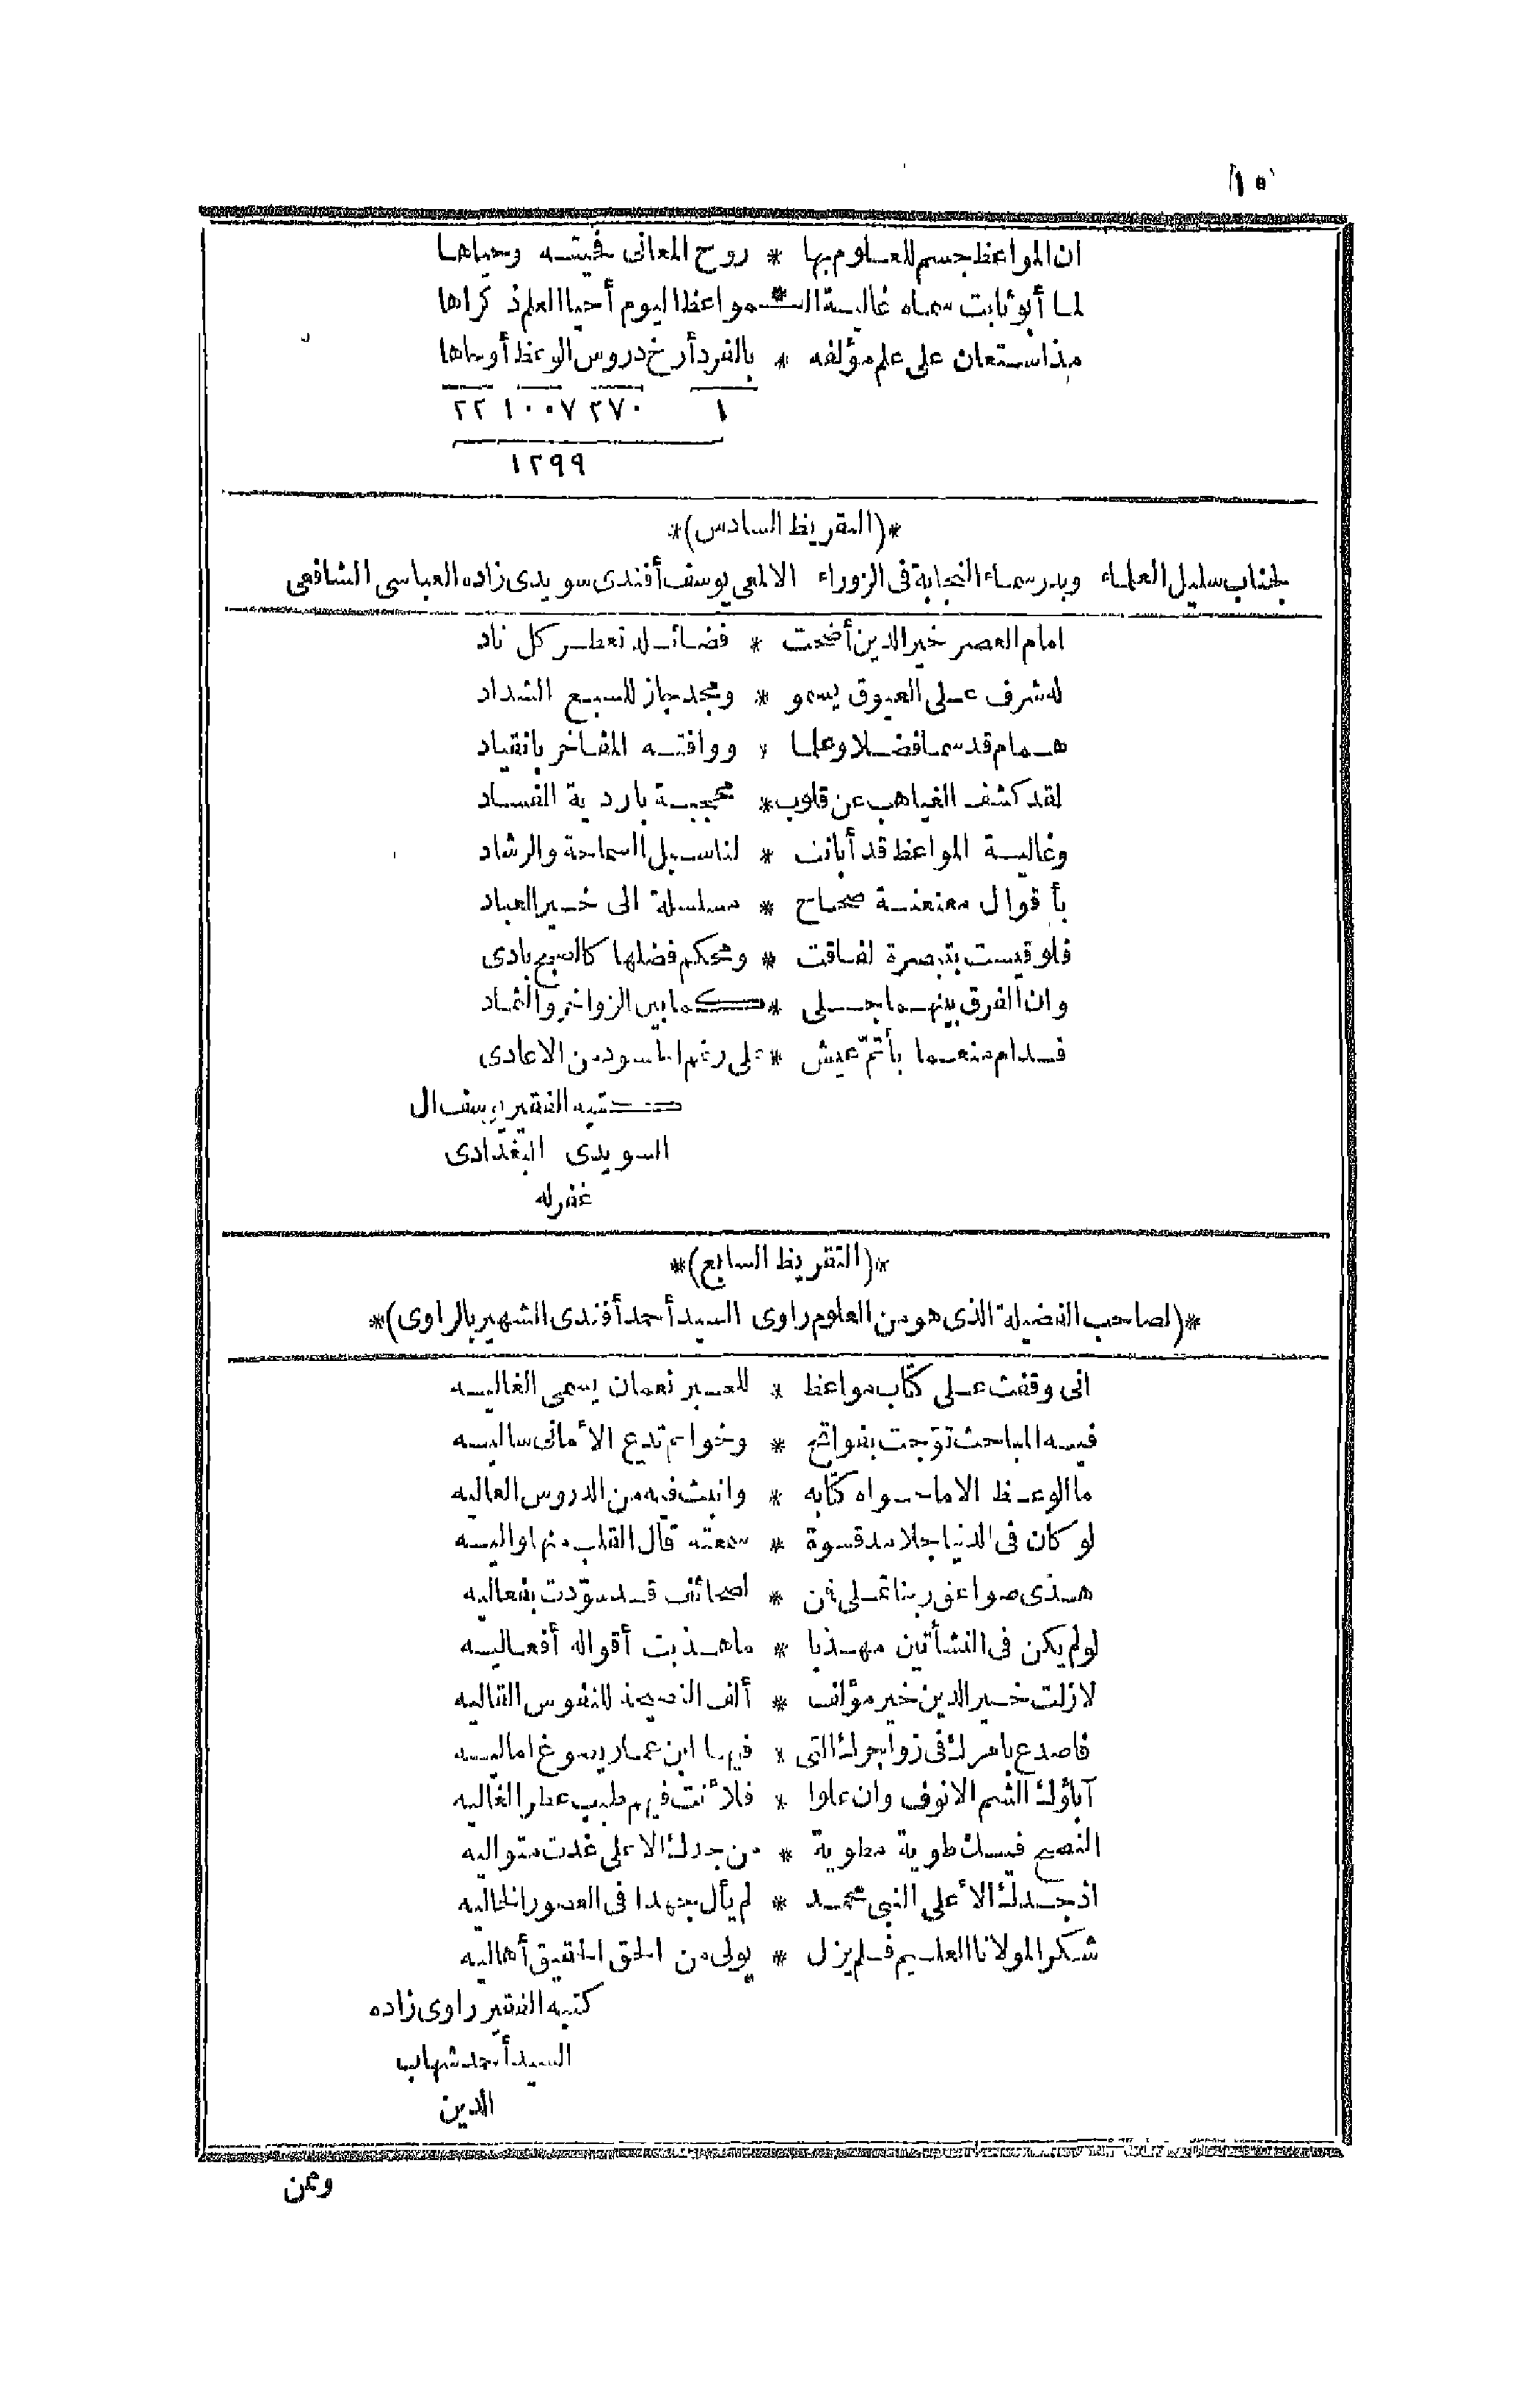 ان المواعظ جسم للعلوم بها * روح المعانى فحيته وحياها
لما أبو ثابت سماه غالية الـ * ـمواعظ اليوم أحيا العلم ذكراها
مذ استعان على علم مؤلفه * بالفرد أرخ دروس الوعظ أوساها
١ ٢٧٠ ١٠٠٧ ٢٢
١٢٩٩
*(التقريظ السادس)*
لجناب سليل العلماء وبدر سماء النجابة فى الزوراء الالمعى يوسف أفندى سويدى زاده العباسى الشافعى
امام العصر خير الدين أضحت * فضائله تعطر كل ناد
له شرف على العيوق يسمو * ومجد جاز للسبع الشداد
همام قد سما فضلا وعلما * ووافته المفاخر بانقياد
لقد كشف الغياهب عن قلوب * محجبة باردية الفساد
وغالية المواعظ قد أبانت * لنا سبل السماحة والرشاد
بأقوال معنعنة صحاح * مسلسلة الى خير العباد
فلو قيست بتبصرة لفاقت * ومحكم فضلها كالصبح بادى
وان الفرق بينهما جلى * كما بين الزواخر والثماد
فدام منعما بأتم عيش * على رغم الحسود من الاعادى
كتبه الفقير يوسف ال
السويدى البغدادى
غفر له
*(التقريظ السابع)*
*(لصاحب الفضيلة الذى هو من العلوم راوى السيد أحمد أفندى الشهير بالراوى)*
انى وقفت على كتاب مواعظ * للحبر نعمان يسمى الغاليه
فيه المباحث توّجت بفواتح * وخواتم تدع الأمانى ساليه
ما الوعظ الا ما حواه كتابه * وانبث فيه من الدروس العاليه
لو كان فى الدنيا جلامد قسوة * سمعته قال القلب منها واليه
هذى صواعق ربنا على فمن * لصحائف قد سوّدت بفعاليه
لو لم يكن فى النشأتين مهذبا * ما هذبت أقواله أفعاليه
لازلت خير الدين خير مؤلف * ألف النصيحة للنفوس القاليه
فاصدع بامرك فى زواجرك التى * فيها ابن عمار يسوغ اماليه
آباؤك الشم الانوف وان علوا * فلأنت فيهم طيب عطر الغاليه
النصح فيك طوية مطوية * من جدك الاعلى غدت متواليه
اذ جدك الأعلى النبى محمد * لم يأل جهدا فى العصور الخاليه
شكرا لمولانا العليم فلم يزل * يولى من الحق الحقيق أهاليه
كتبه الفقير راوى زاده
السيد أحمد شهاب
الدين
وممن